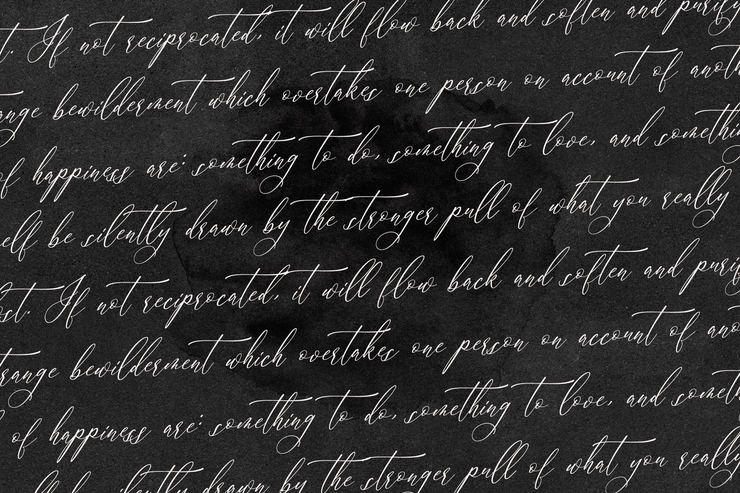 t. If not reciprocated, it will flow back and soften and purify
ange bewilderment which overtakes one person on account of anoth
of happiness are: something to do, something to love, and somethin
elf be silently drawn by the stronger pull of what you really
st. If not reciprocated, it will flow back and soften and purif
range bewilderment which overtakes one person on account of ano
of happiness are: something to do, something to love, and someth
silently drawn by the stronger pull of what you really